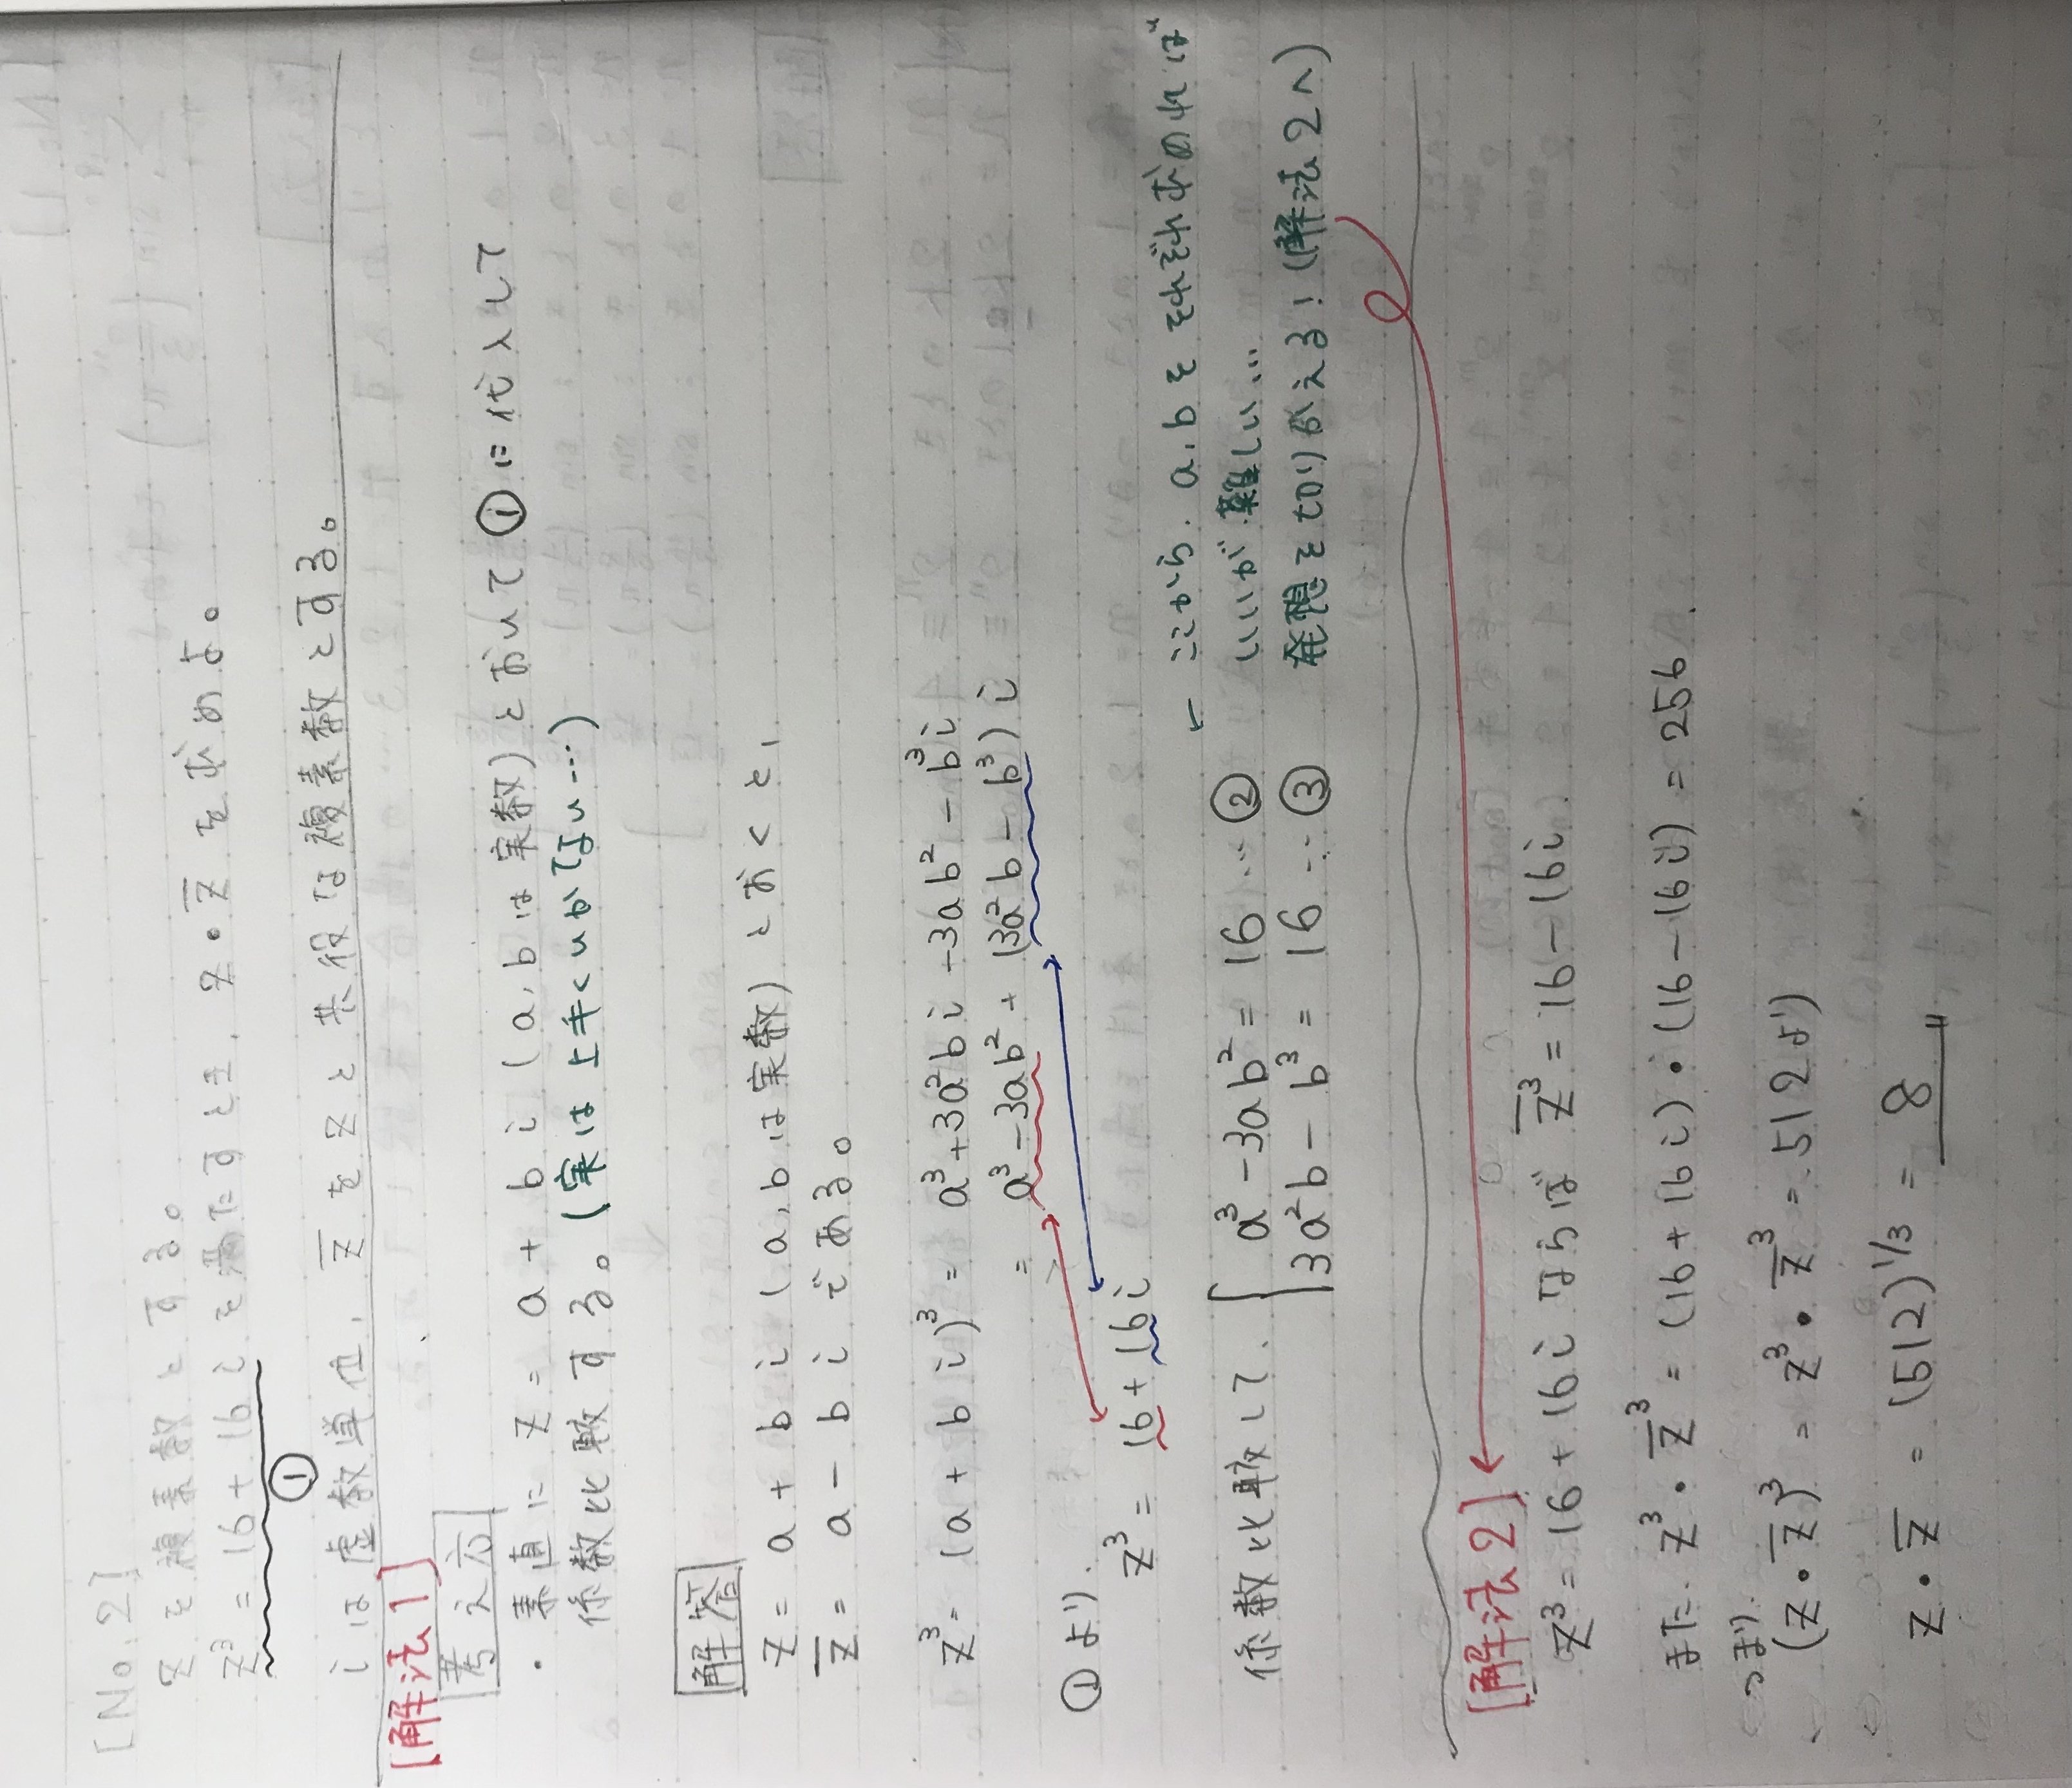 [No.2]
zを複素数とする。
z³ = 16 + 16i を満たすとき、z・z̅ を求めよ。
①
iは虚数単位、z̅ をzと共役な複素数とする。
[解法1]
考え方
・素直に z = a + bi (a,bは実数) とおいて①に代入して
係数比較する。(実は上手くいかない…)
解答
z = a + bi (a,bは実数) とおくと、
z̅ = a - bi である。
z³ = (a + bi)³ = a³ + 3a²bi - 3ab² - b³i
= a³ - 3ab² + (3a²b - b³)i
①より、
z³ = 16 + 16i
係数比較して、{ a³ - 3ab² = 16 … ②
3a²b - b³ = 16 … ③
← ここから、a,bをそれぞれ求めればいいが難しい…
発想を切りかえる! (解法2へ)
[解法2]
z³ = 16 + 16i ならば z̅³ = 16 - 16i
また、z³・z̅³ = (16 + 16i)・(16 - 16i) = 256
つまり、
(z・z̅)³ = z³・z̅³ = 512より
z・z̅ = (512)^1/3 = 8